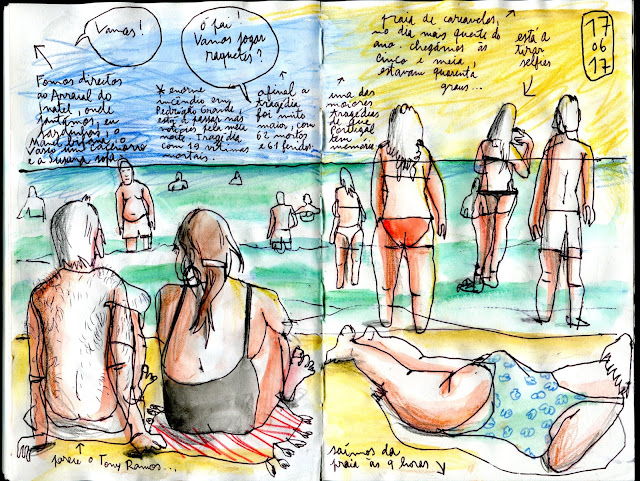 Vamos!
Ó pai!
Vamos jogar
raquetes?
Fomos directos
ao Arraial do
jantámos, eu
sardinhas, o
Vasco um
e a sopa
* enorme
incêndio em
Pedrógão Grande
está a passar nas
notícias pela meia
noite tragédia
com 19 vítimas
mortais.
afinal a
tragédia
foi muito
maior, com
62 mortos
e 61 feridos.
uma das
maiores
tragédias
de que
Portugal
tem
memória
praia de carcavelos,
no dia mais quente do
ano. chegámos às
cinco e meia,
estavam quarenta
graus...
está a
tirar
selfies
17
06
17
parece o Tony Ramos...
saímos da
praia às 9 horas